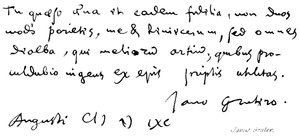 Tu quæso una et eadem fidelia, non duos
modo parietes, me & Rivivenum, sed omnes
dealba, qui meliorū artiū, quibus pro-
culdubio ingens ex epis scriptis utilitas.
Jano Grutero.
Augusti
Janus Gruter.